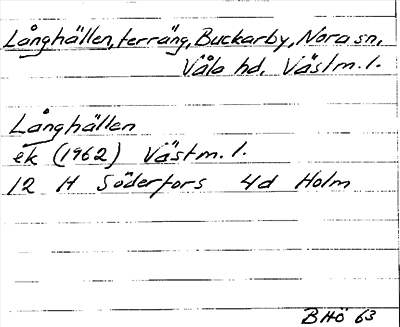 Långhällen, terräng, Buckarby, Nora sn,
Våla hd, Västm. l.
Långhällen
ek (1962) Västm. l.
12 H Söderfors 4d Holm
BHö 63